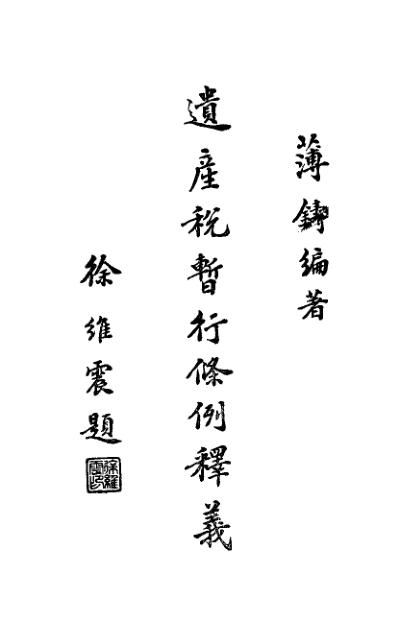 薄鑄編著
遺產稅暫行條例釋義
徐維震題
徐維震印